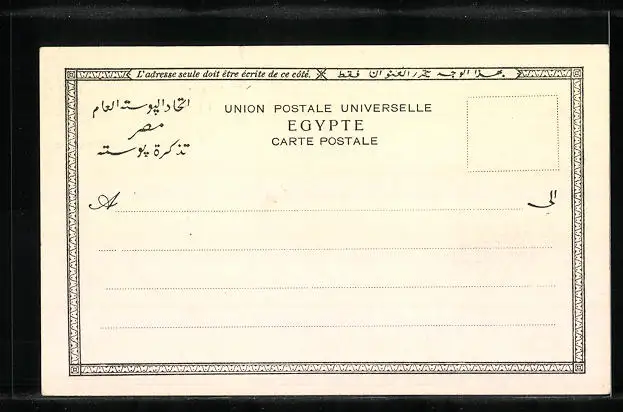 L'adresse seule doit être écrite de ce côté.
بهذا الوجه يحرر العنوان فقط
اتحاد البوسته العام
مصر
تذكرة بوسته
UNION POSTALE UNIVERSELLE
EGYPTE
CARTE POSTALE
A
الى